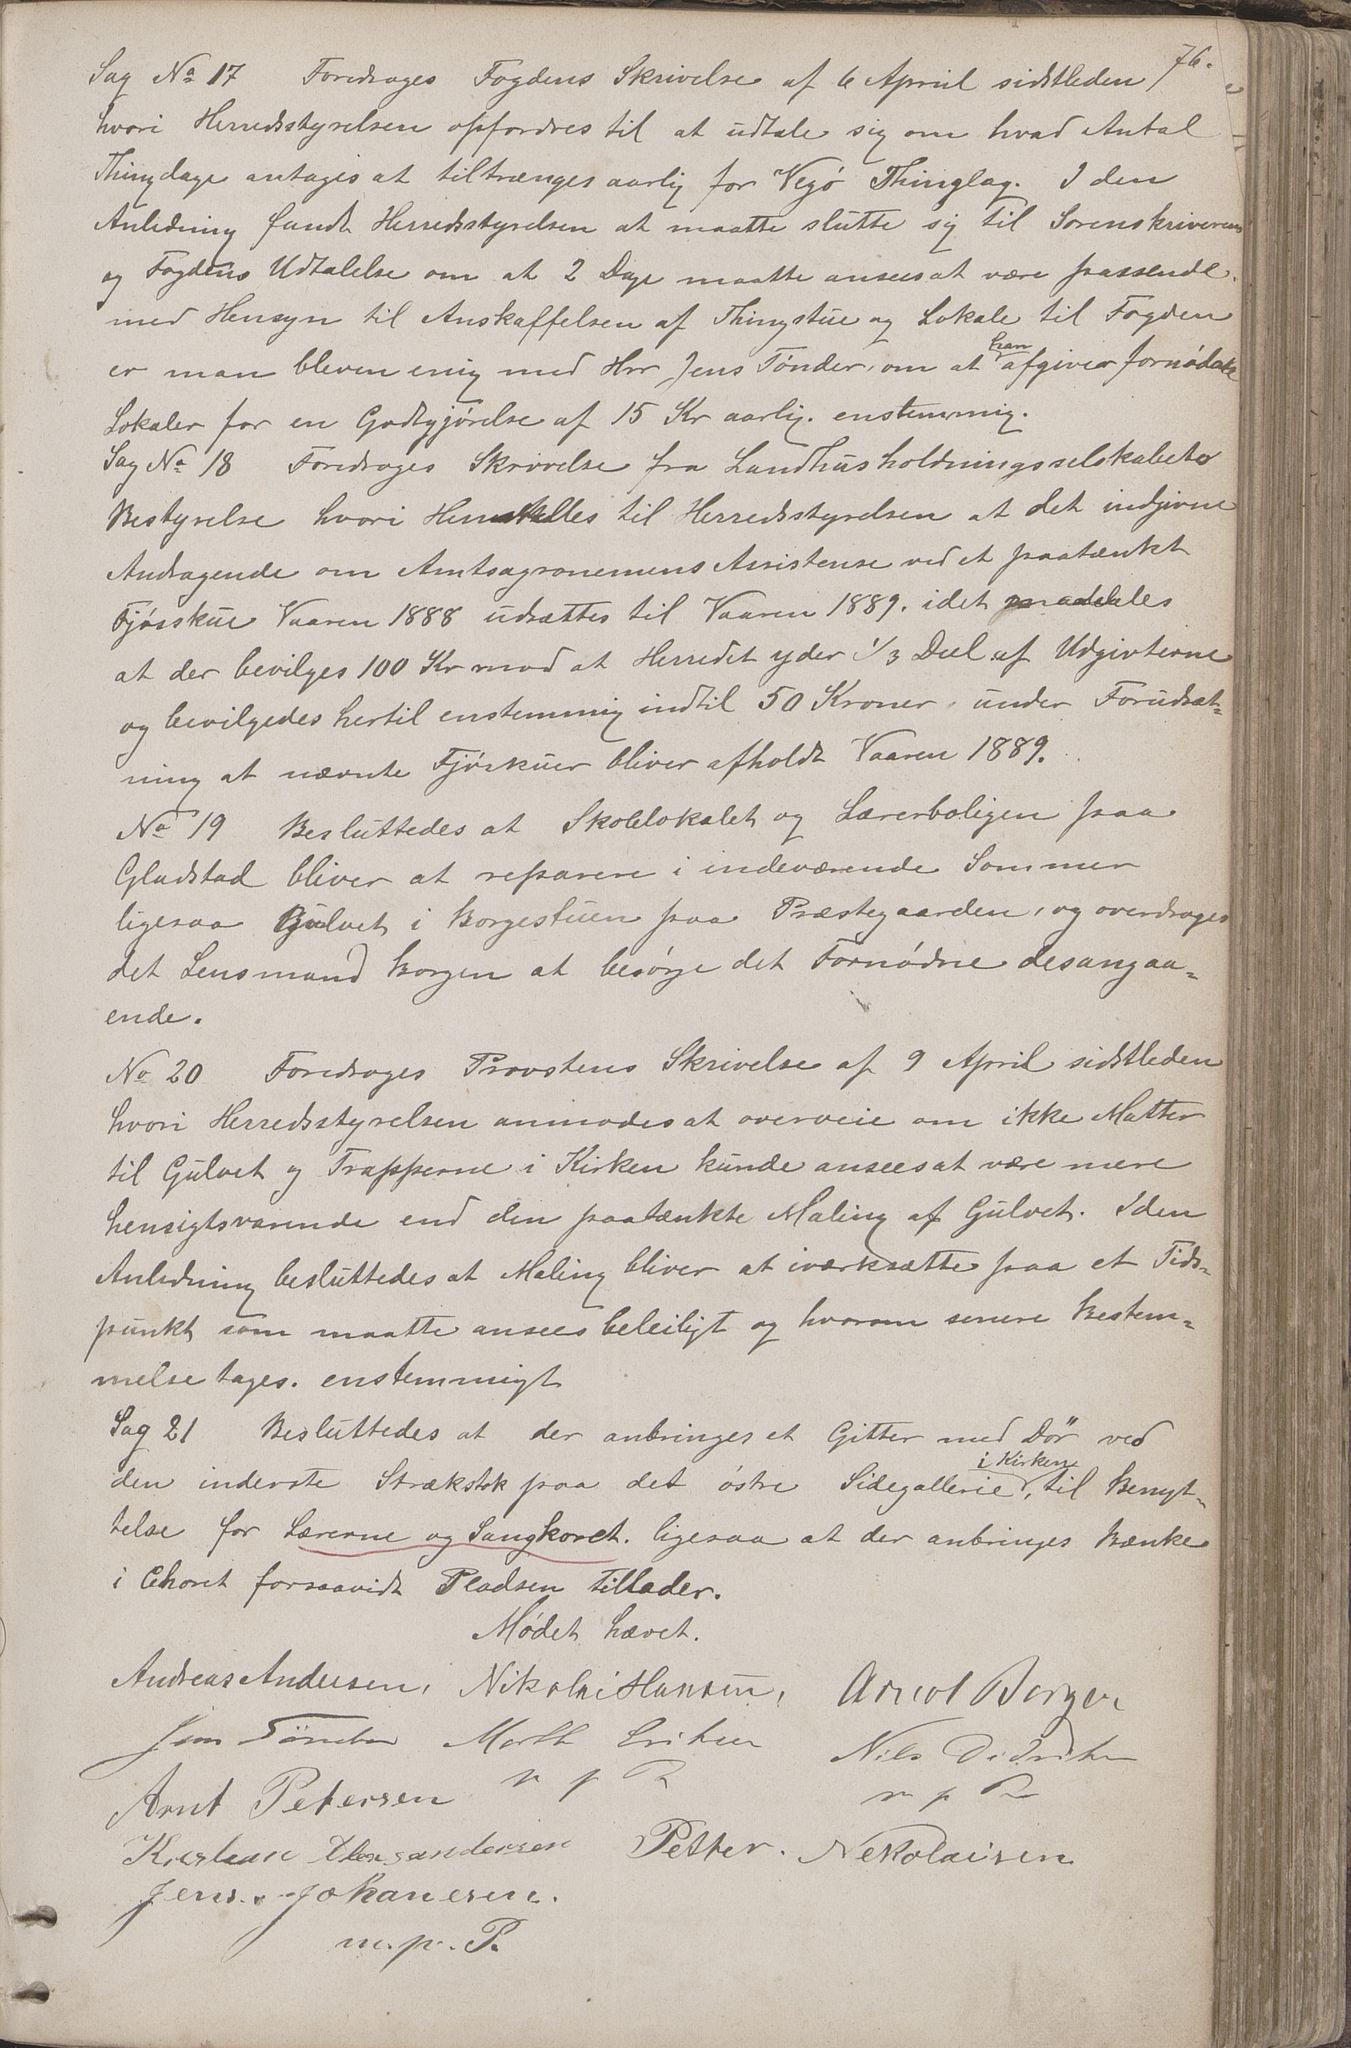 76.
Sag No 17 Foredroges Fogdens Skrivelse af 6 April sidstleden
hvori Herredsstyrelsen opfordres til at udtale sig om hvad Antal
Thingdage antages at tiltrænges aarlig for Vegø Thinglag. I den
Anledning fandt Herredsstyrelsen at maatte slutte sig til Sorenskriverens
og Fogdens Udtalelse om at 2 Dage maatte ansees at være passende.
med Hensyn til Anskaffelsen af Thingstue og Lokale til Fogden
er man bleven enig med Hrr Jens Tønder, om at han afgiver fornødne
Lokaler for en Godtgjørelse af 15 Kr aarlig. enstemmig.
Sag No 18 Foredroges Skrivelse fra Landhusholdningsselskabets
Bestyrelse hvori Henstilles til Herredsstyrelsen at det indgivne
Andragende om Amtsagronemens Assistense ved et paatænkt
Fjøsskue Vaaren 1888 udsættes til Vaaren 1889. idet meddeles
at der bevilges 100 Kr mod at Herredet yder 1/3 Deel af Udgivterne
og bevilgedes hertil enstemmig indtil 50 Kroner, under Forudsæt-
ning at nævnte Fjøskuer bliver afholdt Vaaren 1889.
No 19 Besluttedes at Skolelokalet og Lærerboligen paa
Gladstad bliver at reparere i indeværende Sommer
ligesaa Gulvet i Borgestuen paa Præstegaarden, og overdroges
det Lensmand Borgen at besørge det Fornødne desangaa-
ende.
No 20 Foredroges Provstens Skrivelse af 9 April sidstleden
hvori Herredsstyrelsen anmodes at overveie om ikke Matter
til Gulvet og Trapperne i Kirken kunde ansees at være mere
hensigtsvarende end den paatænkte Maling af Gulvet. I den
Anledning besluttedes at Maling bliver at iværksætte paa et Tids-
punkt som maatte ansees beleiligt og hvorom senere Bestem-
melse tages. enstemmigt
Sag 21 Besluttedes at der anbringes et Gitter med Dör ved
den inderste Strækstok paa det östre Sidegallerie i Kirken, til Benyt-
telse for Lærerne og Sangkoret. ligesaa at der anbringes Bænke
i Choret forsaavidt Pladsen tillader.
Mødet hævet.
Andreas Andersen, Nikolai Hansen, Arnot Borgen
Jens Tönder Marth Eriksen Nils Didriksen
Arnt Petersen m p P m p P
Kristian Alexandersen Petter. Nekolaisen
Jens. Johanesen.
m. p. P.